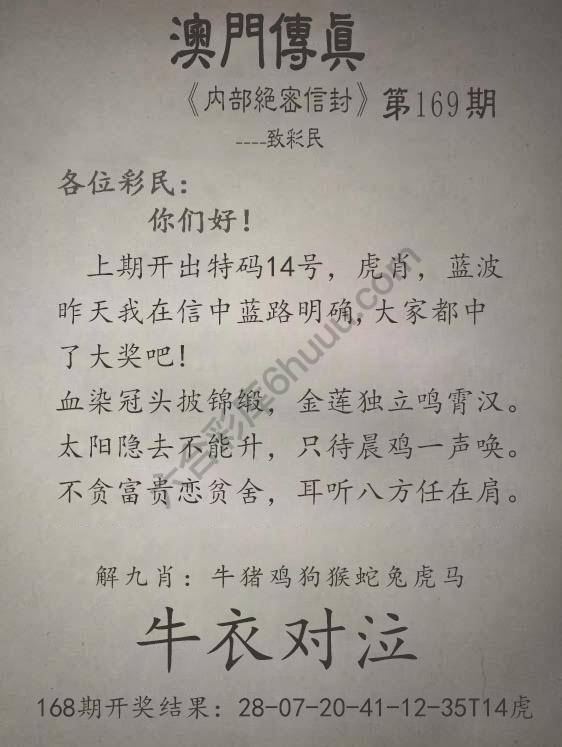 澳門傳眞
《内部絕密信封》第169期
----致彩民
各位彩民：
你们好！
上期开出特码14号，虎肖，蓝波
昨天我在信中蓝路明确,大家都中
了大奖吧！
血染冠头披锦缎，金莲独立鸣霄汉。
太阳隐去不能升，只待晨鸡一声唤。
不贪富贵恋贫舍，耳听八方任在肩。
解九肖：牛猪鸡狗猴蛇兔虎马
牛衣对泣
168期开奖结果：28-07-20-41-12-35T14虎
六合彩库6huuu.com